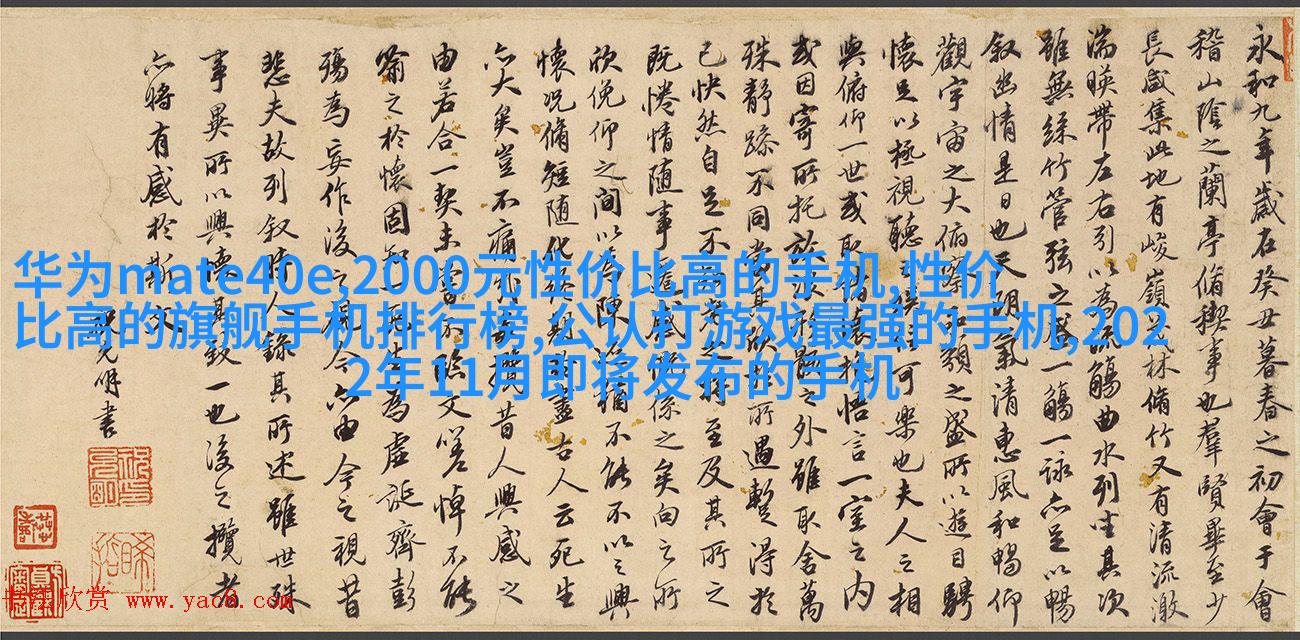 永和九年歲在癸丑暮春之初會于會
稽山陰之蘭亭脩稧事也羣賢畢至少
長咸集此地有峻嶺茂林脩竹又有清流激
湍暎帶左右引以為流觴曲水列坐其次
雖無絲竹管弦之盛一觴一詠亦足以暢
叙幽情是日也天朗氣清惠風和暢仰
觀宇宙之大俯察品類之盛所以遊目騁
懷足以極視聽娛信可樂也夫人之相
與俯仰一世或取諸懷抱悟言一室之內
或因寄所托放浪形骸之外雖取舍萬
殊靜躁不同當其欣於所遇蹔得於
己快然自足不老之將至及其所之
既惓情随事遷感慨係之矣向之所
欣俛仰之間以為陳迹猶不能不以之興
懷況脩短随化終期於盡古人云死生
亦大矣豈不痛哉每攬昔人興感之
由若合一契未嘗不臨文嗟悼不能
喻之於懷固知一死生為虛誕齊彭
殤為妄作後之視今亦由今之視昔
悲夫故列叙時人錄其所述雖世殊
事異所以興懷其致一也後之攬者
亦將有感於斯文
允明書
华为mate40e,2000元性价比高的手机,性价
比高的旗舰手机排行榜,公认打游戏最强的手机,202
2年11月即将发布的手机
书法欣赏 www.yac8.com